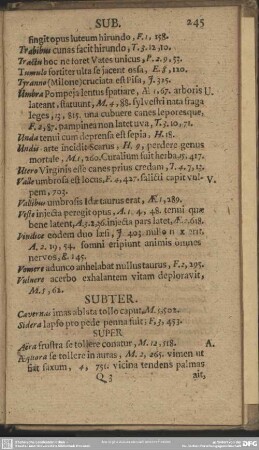 SUB. 245
fingit opus luteum hirundo, F. 1, 158.
Trabibus cunas facit hirundo, T. 3. 12, 10.
Tractu hoc ne foret Vates unicus, P. 2. 9, 53.
Tumulo fortiter ulta se jacent ossa, E. 8, 120.
Tyranno (Milone) cruciata est Pisa, J. 325.
Umbra Pompeja lentus spatiare, Æ 1, 67. arboris U
lateant, statuunt, M. 4, 88. sylvestri nata fraga
leges, 13, 815. una cubuere canes leporesque,
F. 2, 87. pampinea non latet uva, T. 3. 10, 71.
Unda tenui cum deprensa est sepia, H. 18.
Undis arte incidit Scarus, H 9, perdere genus
mortale, M. 1, 260. Cutalium fuit herba 15. 417.
Utero Virginis esse canes prius credam, T. 4. 7, 13.
Valle umbrosa est locus, F. 4, 427. salicti capit vul- V.
pem, 703.
Vallibus umbrosis Idæ taurus erat, Æ 1, 289.
Veste injecta peregit opus, A. 1. 4, 48. tenui quæ
bene latent, A. 3. 236. injecta pars latet, Æ 2, 618.
eodem duo læsi, J. 403
A. 2. 19, 54. somni eripiunt animis omnes
nervos, E. 145.
Vomere adunco anhelabat nullus taurus, F. 2, 295.
Vulnere acerbo exhalantem vitam deploravit,
M. 5, 62.
SUBTER.
Cavernas imas ablata tollo caput, M. 5, 502.
Sidera lapso pro pede penna fuit, F. 3, 453.
SUPER.
Aëra frustra se tollere conatur, M. 12, 518. A.
Æquora se tollere in auras, M. 2, 265. vimen ut
fiat saxum, 4, 751. vicina tendens palmas
Q 3 ait,